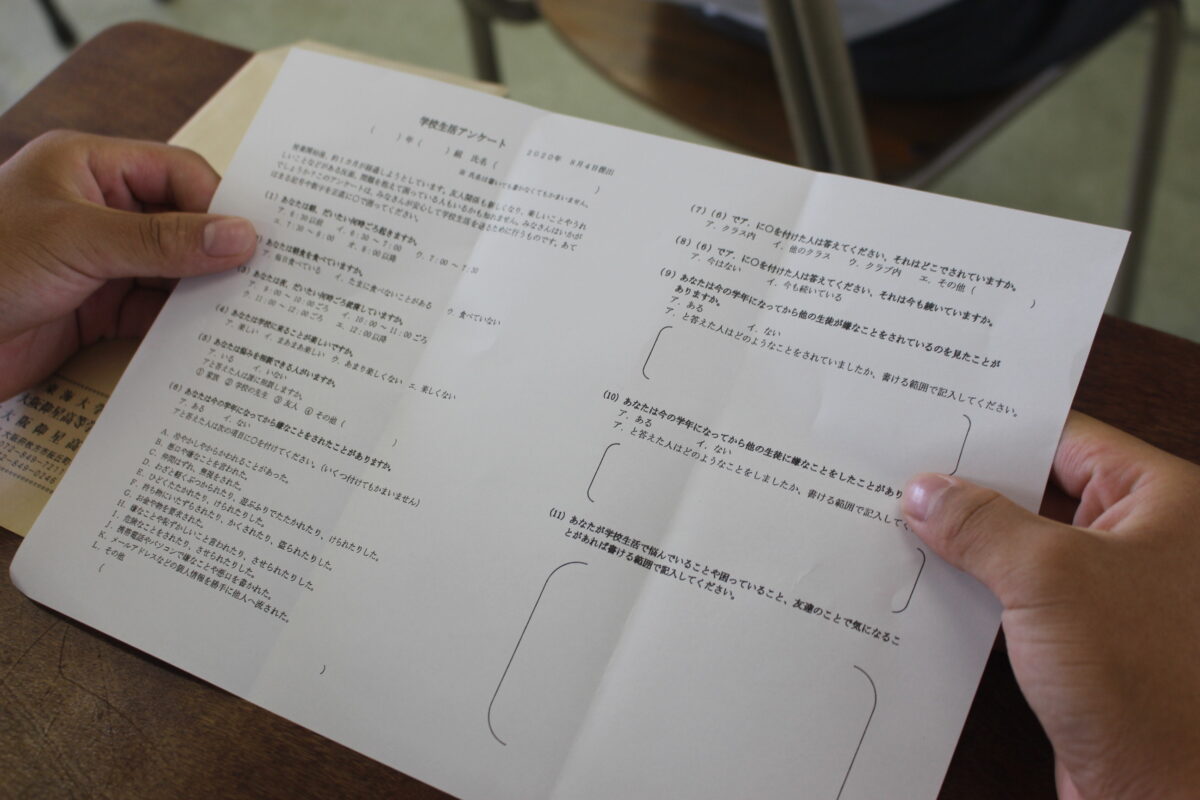 学校生活アンケート
2020年 9月4日提出
( )年( )組 氏名( )
※ 氏名は書いても書かなくてもかまいません。
授業開始後、約1カ月が経過しようとしています。友人関係も新しくなり、楽しいことやうれ
しいことなどがある反面、問題を抱えて困っている人もいるかも知れません。みなさんはいかが
でしょうか?このアンケートは、みなさんが安心して学校生活を送るために行うものです。あて
はまる記号や数字を正直に○で囲ってください。
(1)あなたは朝、だいたい何時ごろ起きますか。
ア.6:30以前 イ.6:30~7:00 ウ.7:00~7:30
エ.7:30~8:00 オ.8:00以降
あなたは朝食を食べていますか。
ア.毎日食べている イ.たまに食べないことがある ウ.食べていない
(3)あなたは夜、だいたい何時ごろ就寝していますか。
ア.9:00~10:00ごろ イ.10:00~11:00ごろ
ウ.11:00~12:00ごろ エ.12:00以降
(4)あなたは学校に来ることが楽しいですか。
ア.楽しい イ.まあまあ楽しい ウ.あまり楽しくない エ.楽しくない
(5)あなたは悩みを相談できる人がいますか。
ア.いる イ.いない
アと答えた人は誰に相談しますか。
① 家族 ② 学校の先生 ③ 友人 ④ その他( )
(6)あなたは今の学年になってから嫌なことをされたことがありますか。
ア.ある イ.ない
アと答えた人は次の項目に○を付けてください。(いくつ付けてもかまいません)
A.冷やかしやからかわれることがあった。
B.悪口や嫌なことを言われた。
C.仲間はずれ、無視をされた。
D.わざと軽くぶつかられたり、遊ぶふりでたたかれたり、けられたりした。
E.ひどくたたかれたり、けられたりした。
F.持ち物にいたずらされたり、かくされたり、盗られたりした。
G.お金や物を要求された。
H.嫌なことや恥ずかしいこと言われたり、させられたりした。
I.危険なことをされたり、させられたりした。
J.携帯電話やパソコンで嫌なことや悪口を書かれた。
K.メールアドレスなどの個人情報を勝手に他人へ流された。
L.その他
( )
(7)(6)でア.に○を付けた人は答えてください。それはどこでされていますか。
ア.クラス内 イ.他のクラス ウ.クラブ内 エ.その他( )
(8)(6)でア.に○を付けた人は答えてください。それは今も続いていますか。
ア.今はない イ.今も続いている
(9)あなたは今の学年になってから他の生徒が嫌なことをされているのを見たことが
ありますか。
ア.ある イ.ない
ア.と答えた人はどのようなことをされていましたか、書ける範囲で記入してください。
(10)あなたは今の学年になってから他の生徒に嫌なことをしたことがあり
ア.ある イ.ない
ア.と答えた人はどのようなことをしましたか、書ける範囲で記入してく
(11)あなたが学校生活で悩んでいることや困っていること、友達のことで気になるこ
とがあれば書ける範囲で記入してください。
東海大
大阪仰星高等学
大阪仰星高